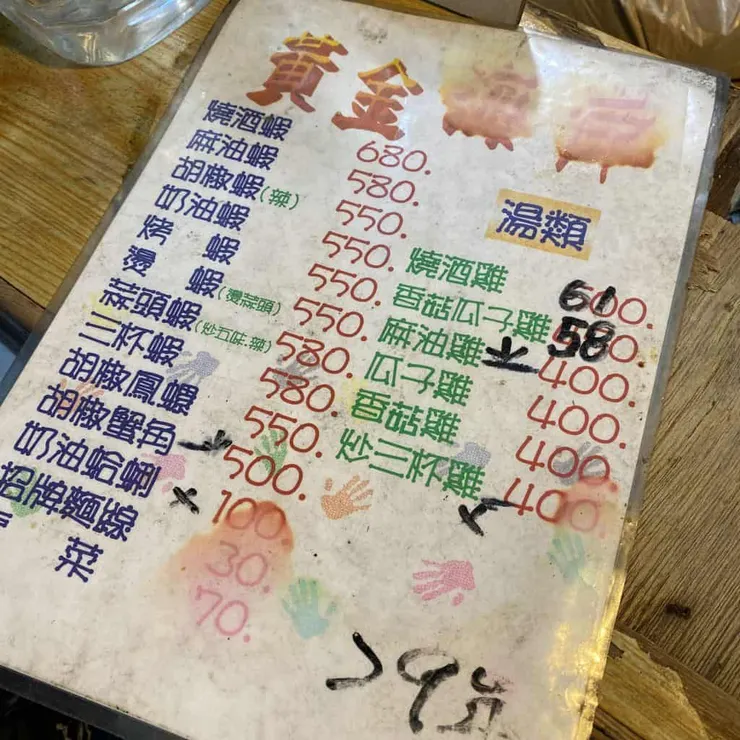 黃金
燒酒蝦 680.
麻油蝦 580.
胡椒蝦(辣) 550.
奶油蝦 550.
烤 蝦 550.
燙 蝦 550.
蒜頭蝦(燙蒜頭) 580.
三杯蝦(炒五味.辣) 580.
胡椒鳳螺 550.
胡椒蟹角 500.
奶油蛤蜊 100.
招牌麵線 30.
菜 70.
湯類
燒酒雞 6100.
香菇瓜子雞 580.
麻油雞 400.
瓜子雞 400.
香菇雞 400.
炒三杯雞 400.